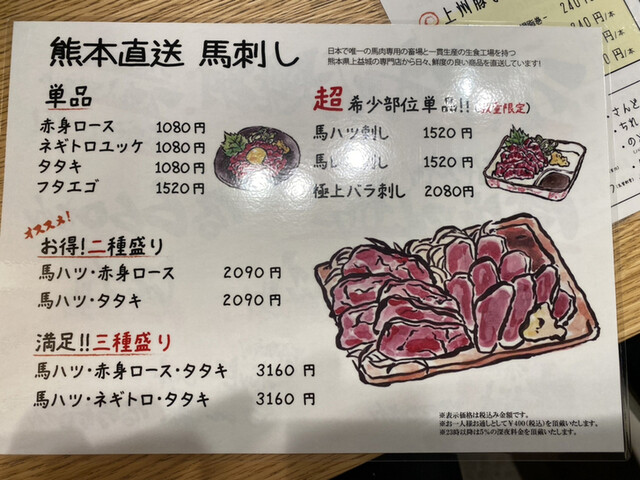 熊本直送 馬刺し
日本で唯一の馬肉専用の畜場と一貫生産の生食工場を持つ
熊本県上益城の専門店から日々、鮮度の良い商品を直送しています!
単品
赤身ロース 1080円
ネギトロユッケ 1080円
タタキ 1080円
フタエゴ 1520円
超 希少部位単品!!
馬ハツ刺し 1520円
1520円
極上バラ刺し 2080円
オススメ!
お得!二種盛り
馬ハツ・赤身ロース 2090円
馬ハツ・タタキ 2090円
満足!!三種盛り
馬ハツ・赤身ロース・タタキ 3160円
馬ハツ・ネギトロ・タタキ 3160円
※表示価格は税込み金額です。
※お一人様お通しとして¥490(税込)を頂戴いたします。
※23時以降は5%の深夜料金を頂戴いたします。
上州豚
240円/本